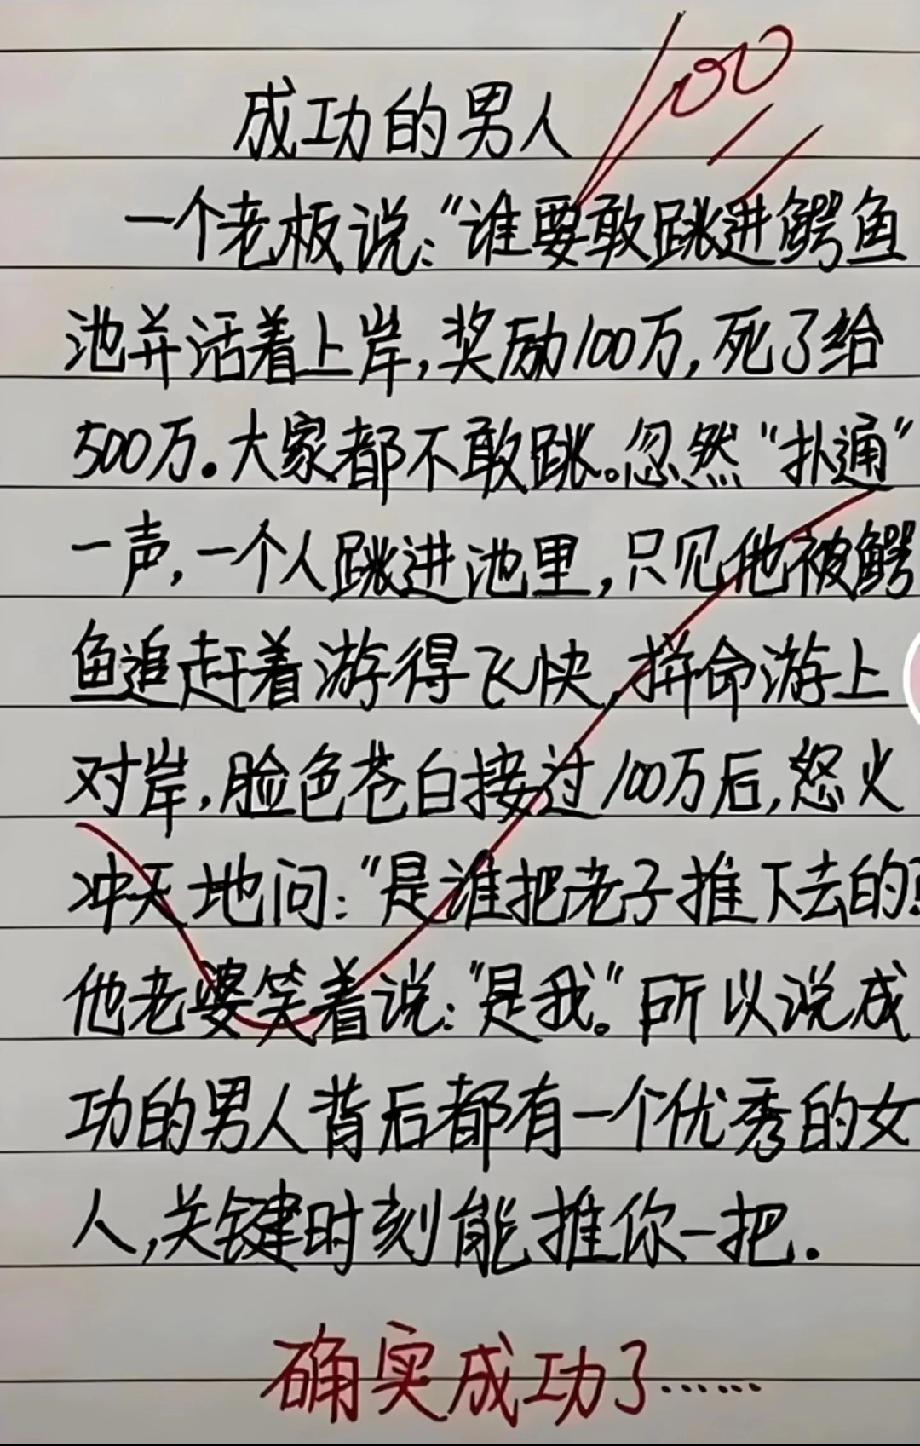 100
成功的男人
一个老板说:“谁要敢跳进鳄鱼
池并活着上岸,奖励100万,死了给
500万。大家都不敢跳。忽然“扑通”
一声,一个人跳进池里,只见他被鳄
鱼追赶着游得飞快,拼命游上
对岸,脸色苍白接过100万后,怒火
冲天地问:“是谁把老子推下去的
他老婆笑着说:“是我。”所以说成
功的男人背后都有一个优秀的女
人,关键时刻能推你一把.
确实成功了……